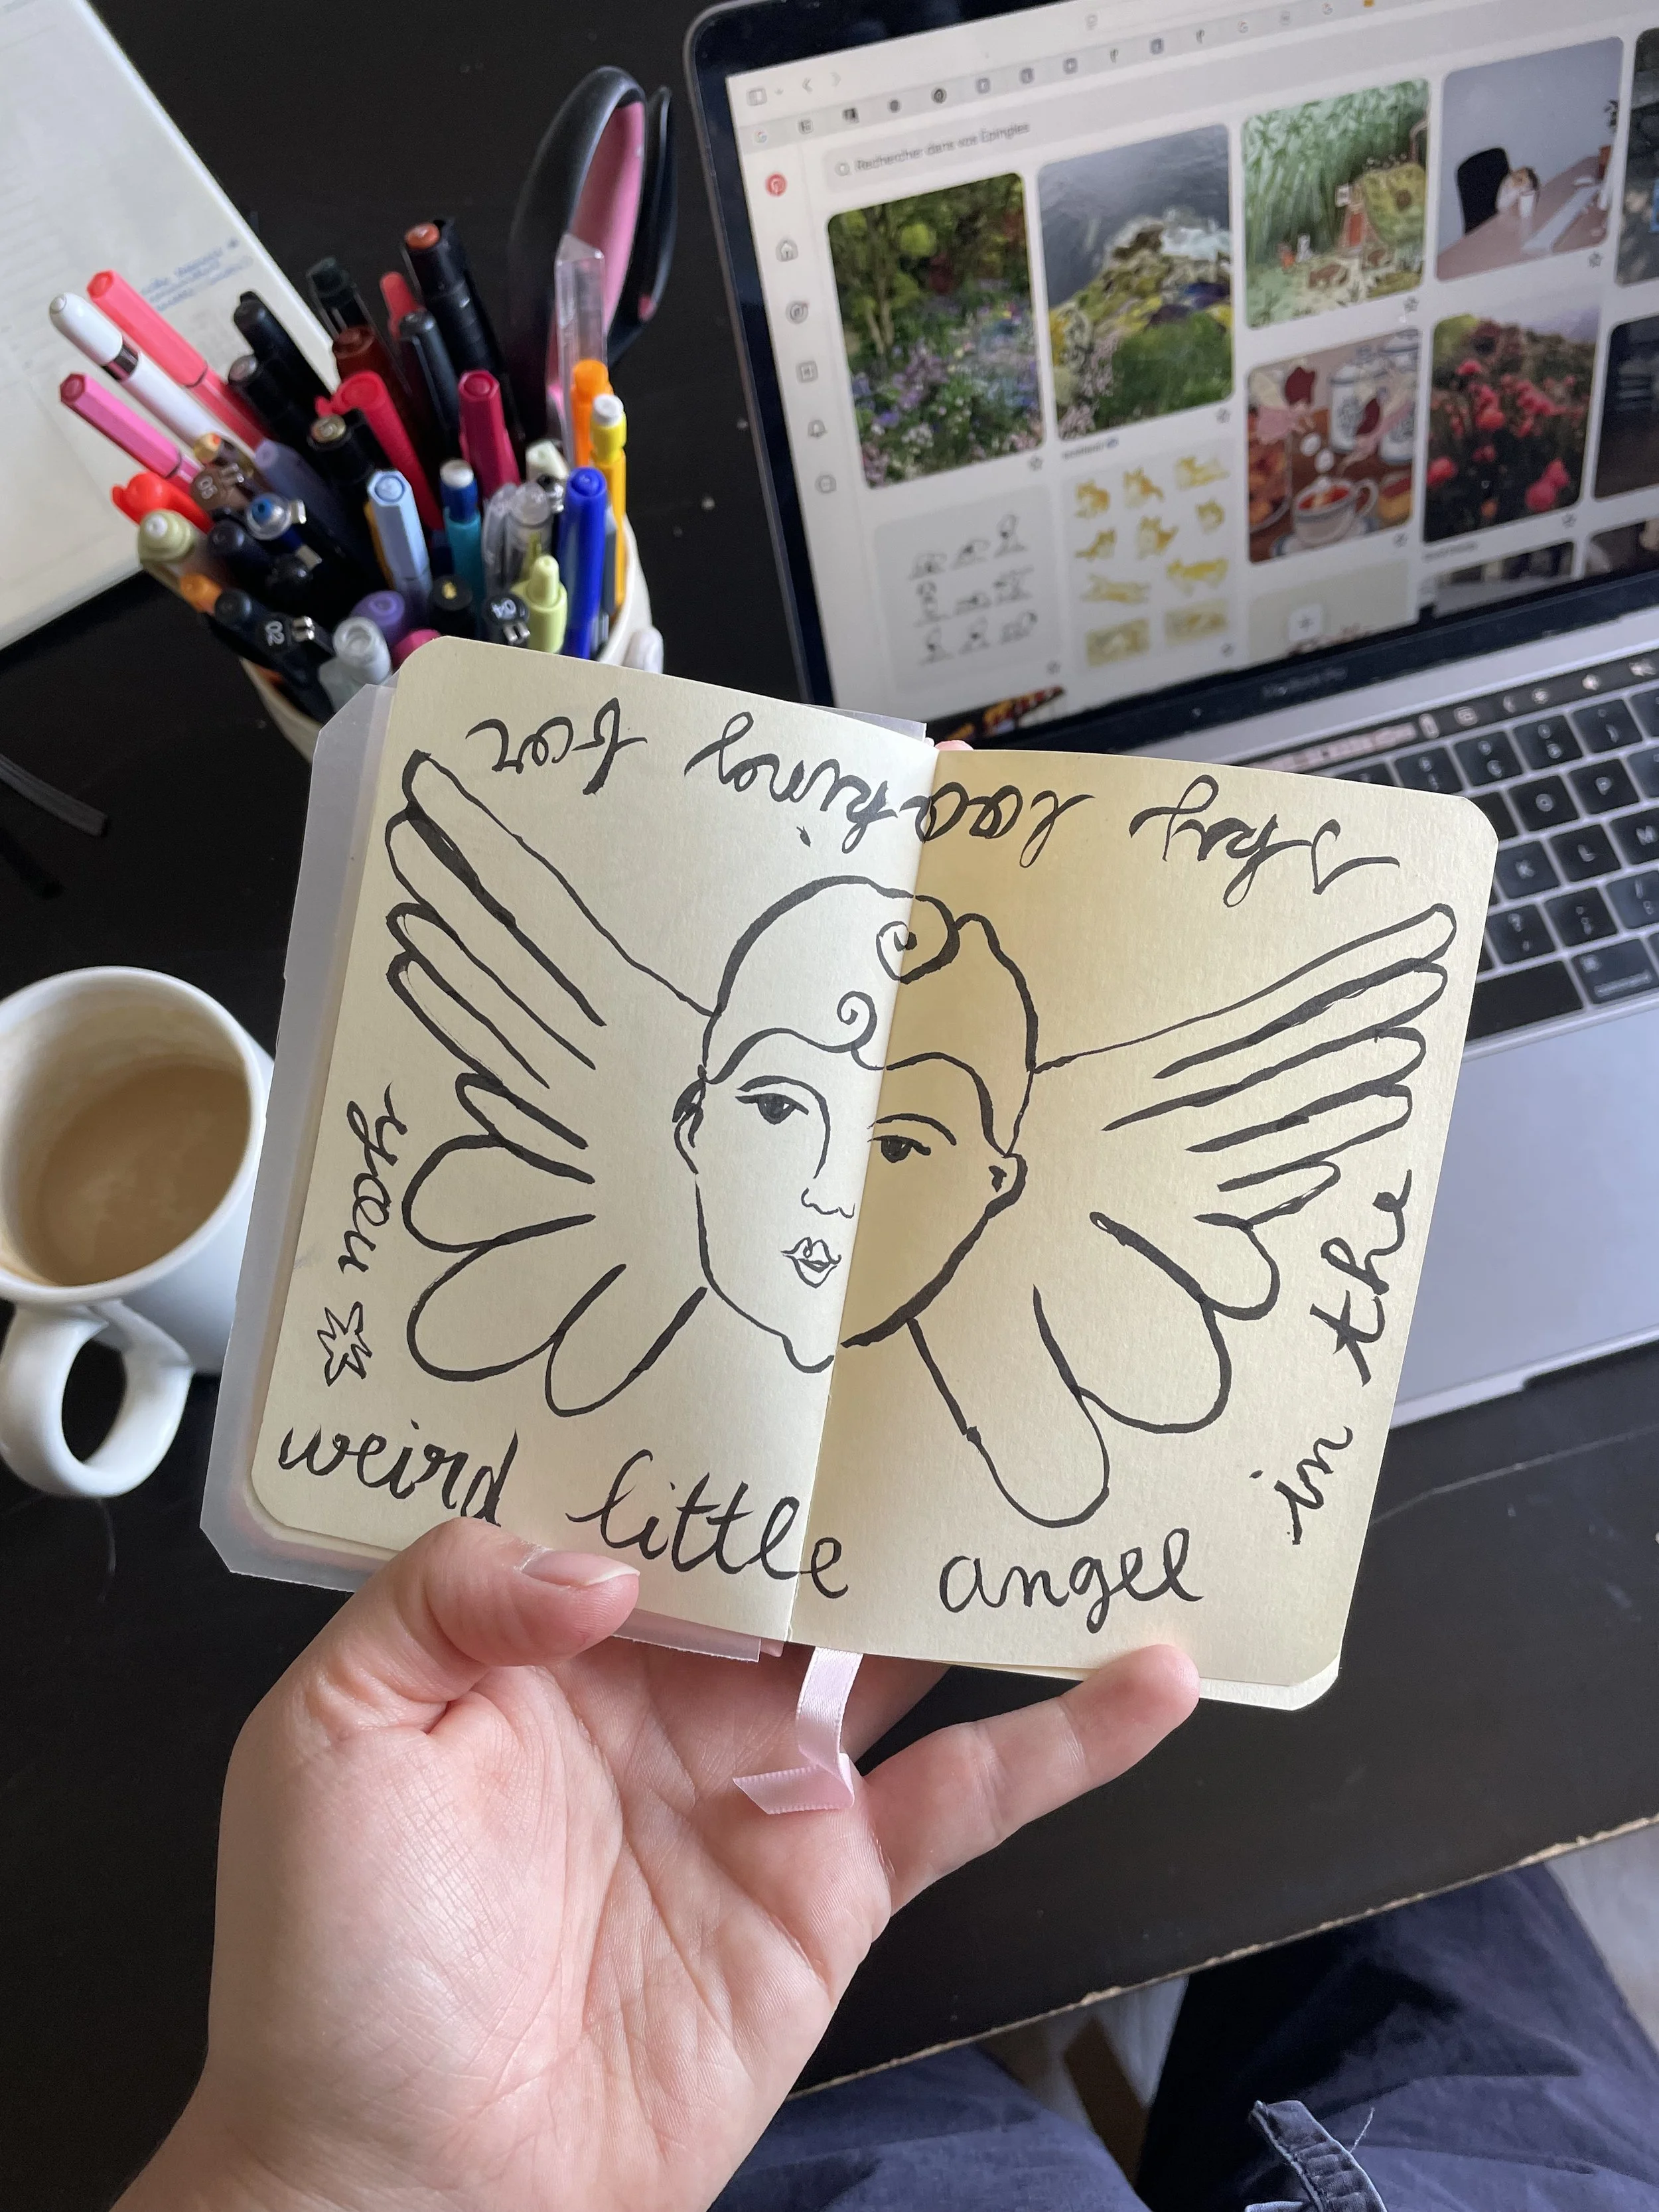 weird little angel
in the
sky looking for
you
Rechercher dans vos Épingles
MacBook Pro
04
02